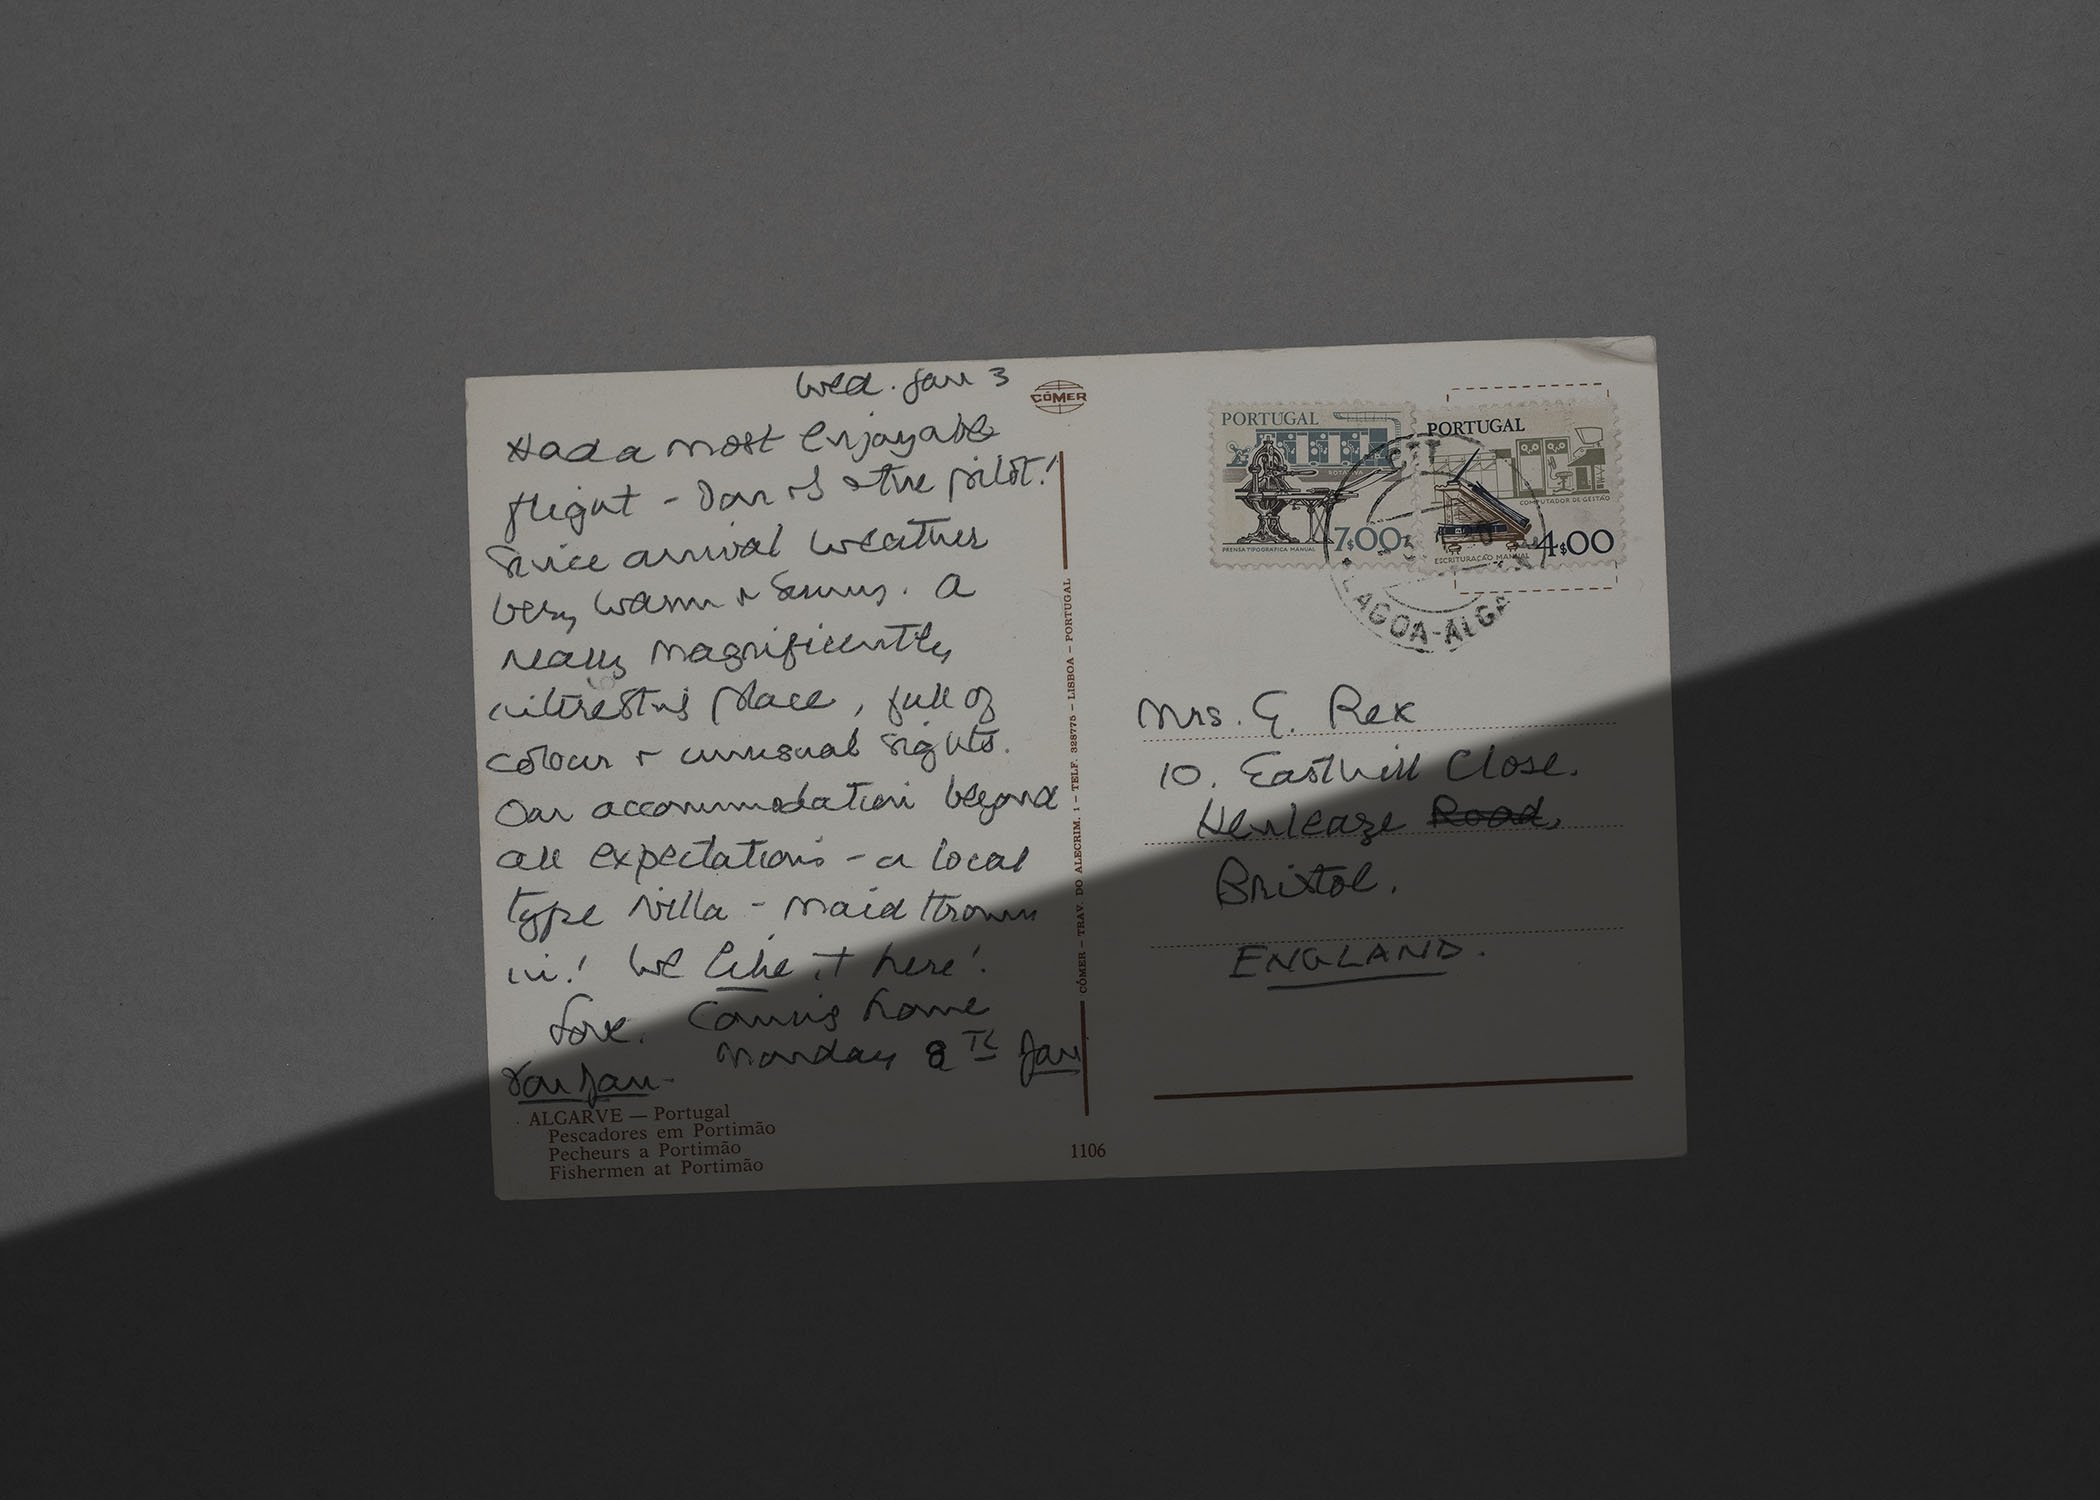 Wed. Jan 3
Had a most enjoyable
flight - Don is the pilot!
Since arrival weather
very warm & sunny. A
really magnificently
interesting place, full of
colour & unusual sights.
Our accommodation beyond
all expectations - a local
type villa - maid thrown
in! We like it here!
Love. Coming home
Monday 8TH Jan
Jan
ALGARVE — Portugal
Pescadores em Portimão
Pecheurs a Portimão
Fishermen at Portimão
CÓMER
CÓMER — TRAV. DO ALECRIM. 1 — TELF. 328775 — LISBOA — PORTUGAL
1106
PORTUGAL
ROTATIVA
7$00
PRENSA TIPOGRÁFICA MANUAL
PORTUGAL
COMPUTADOR DE GESTÃO
4$00
ESCRITURAÇÃO MANUAL
CTT
LAGOA-ALGA
Mrs. G. Rex
10. Easthill Close.
Henleaze Road,
Bristol.
ENGLAND.